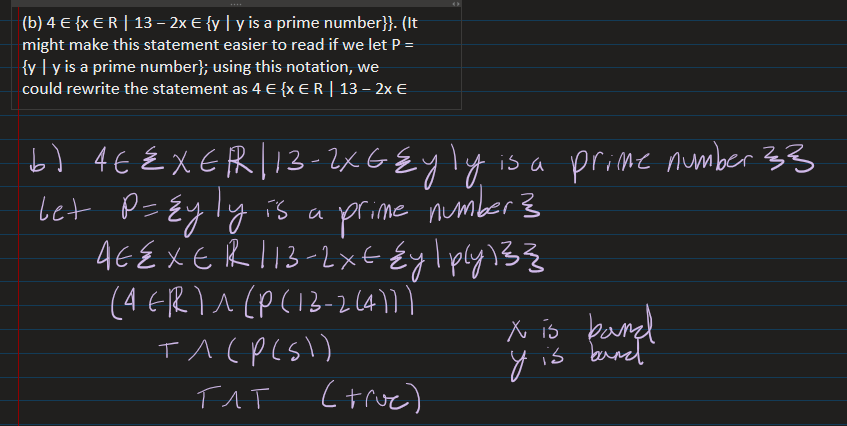 (b) 4 ∈ {x ∈ R | 13 – 2x ∈ {y | y is a prime number}}. (It
might make this statement easier to read if we let P =
{y | y is a prime number}; using this notation, we
could rewrite the statement as 4 ∈ {x ∈ R | 13 – 2x ∈
b) 4 ∈ {x ∈ ℝ | 13 - 2x ∈ {y | y is a prime number}}
Let P = {y | y is a prime number}
4 ∈ {x ∈ ℝ | 13 - 2x ∈ {y | p(y)}}
(4 ∈ ℝ) ∧ (P(13 - 2(4)))
T ∧ (P(5))
T ∧ T (true)
x is band
y is band